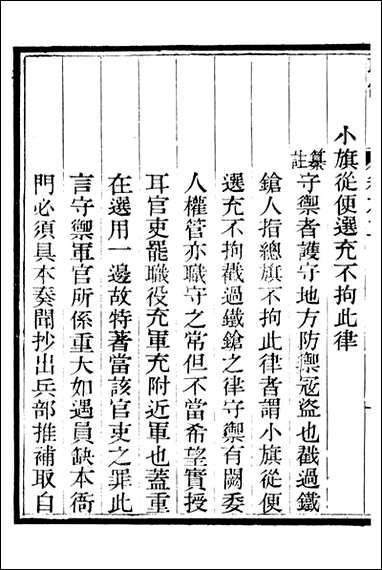 小旗從便選充不拘此律
纂註守禦者護守地方防禦寇盜也戳過鐵
鎗人指總旗不拘此律者謂小旗從便
選充不拘戳過鐵鎗之律守禦有闕委
人權管亦職守之常但不當希望實授
耳官吏罷職役充軍充附近軍也蓋重
在選用一邊故特著當該官吏之罪此
言守禦軍官所係重大如遇員缺本衙
門必須具本奏聞抄出兵部推補取自